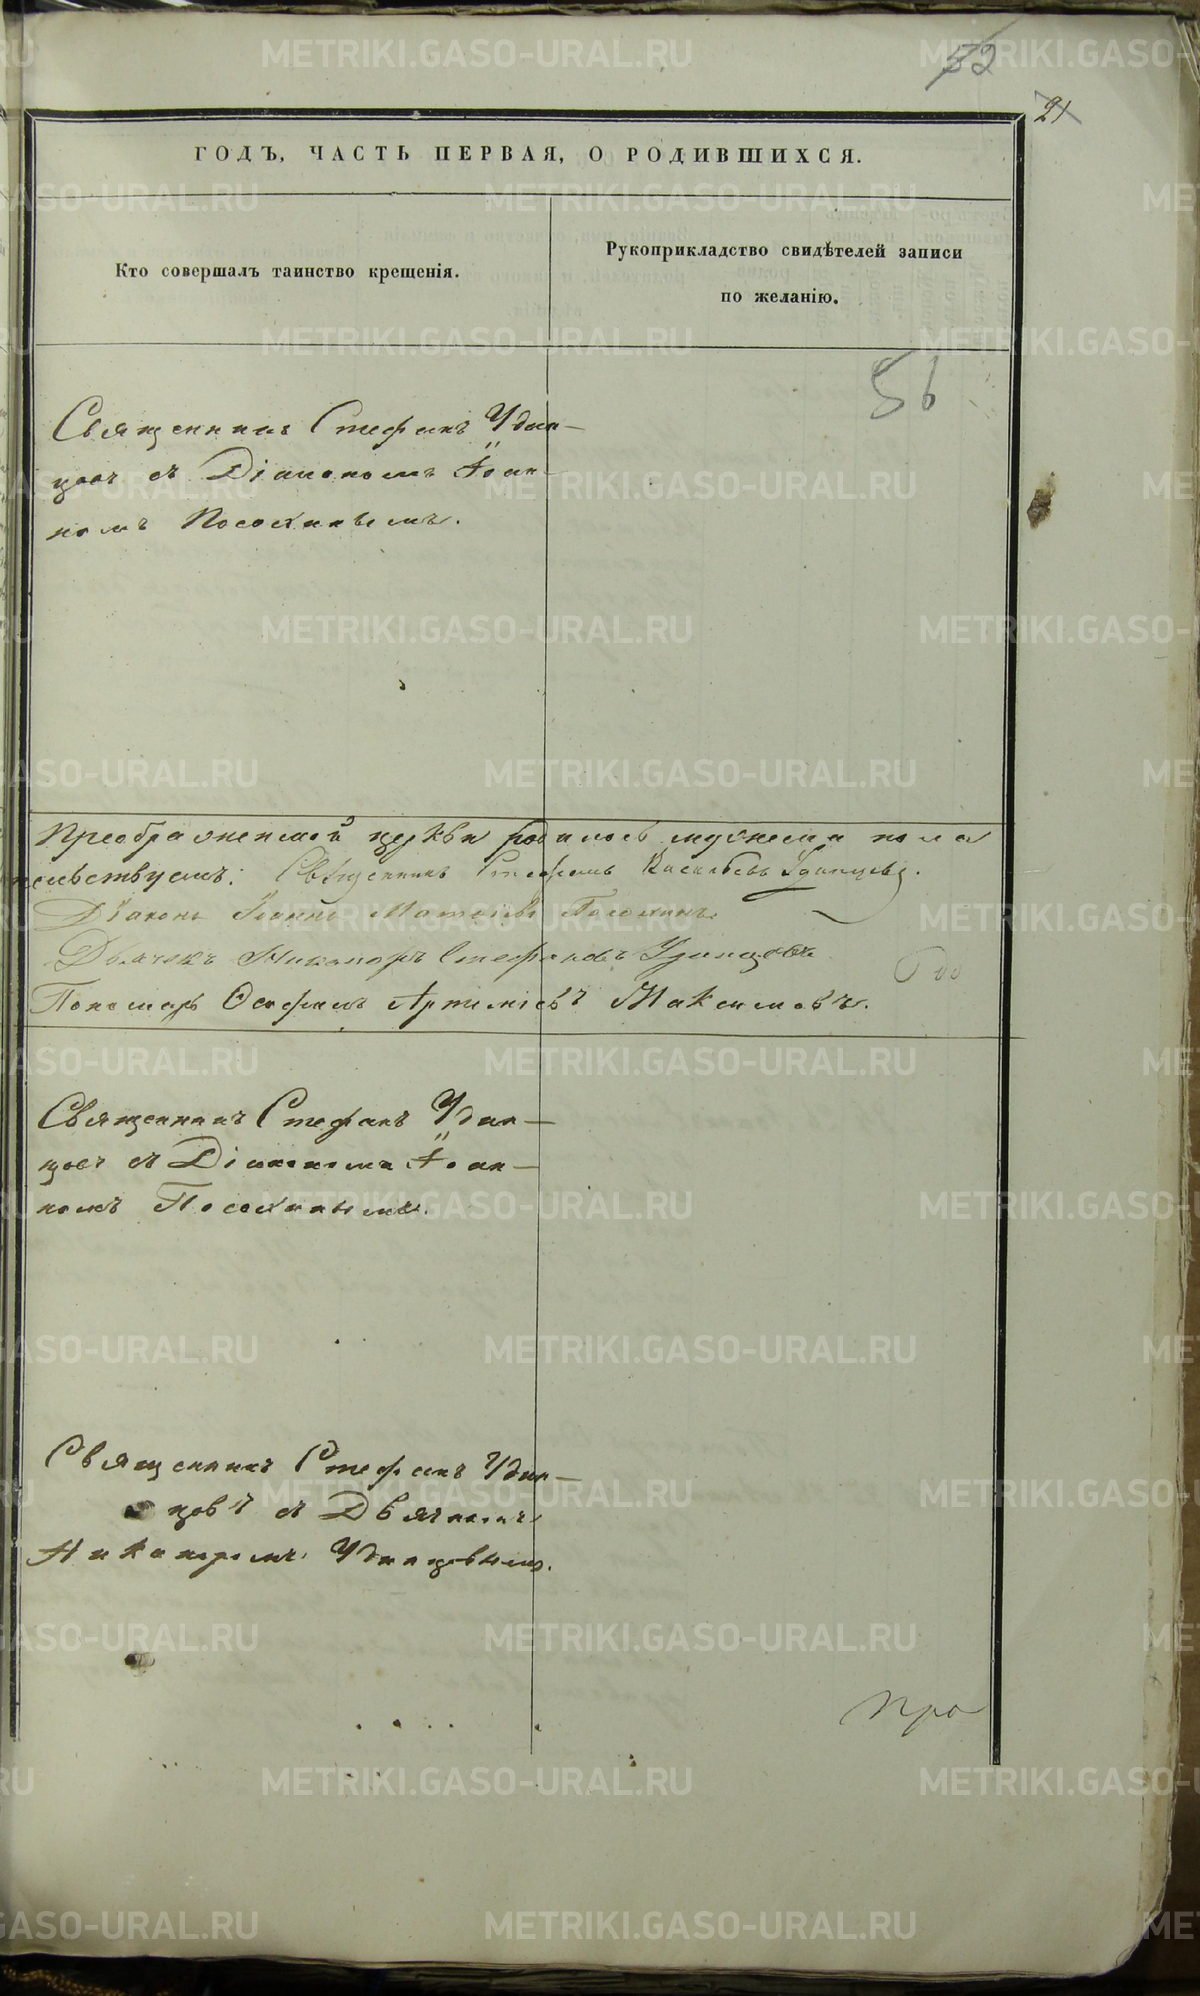 52
21
ГОДЪ, ЧАСТЬ ПЕРВАЯ, О РОДИВШИХСЯ.
Кто совершалъ таинство крещенія.
Рукоприкладство свидѣтелей записи
по желанію.
56
Священникъ Стефанъ Удин-
цовъ съ Діакономъ Іоан-
номъ Посохинымъ.
Преображенской церкви родилось мужеска пола
тельствуемъ: Священникъ Стефанъ Васильевъ Удинцевъ.
Діаконъ Іоаннъ Матвѣевъ Посохинъ
Дьячекъ Никаноръ Стефановъ Удинцовъ
Пономарь Стефанъ Артеміевъ Максимовъ.
Священникъ Стефанъ Удин-
цовъ съ Діакономъ Іоан-
номъ Посохинымъ.
Священникъ Стефанъ Удин-
цовъ съ Дьячкомъ
Никаноромъ Удинцовымъ.
Про
METRIKI.GASO-URAL.RU